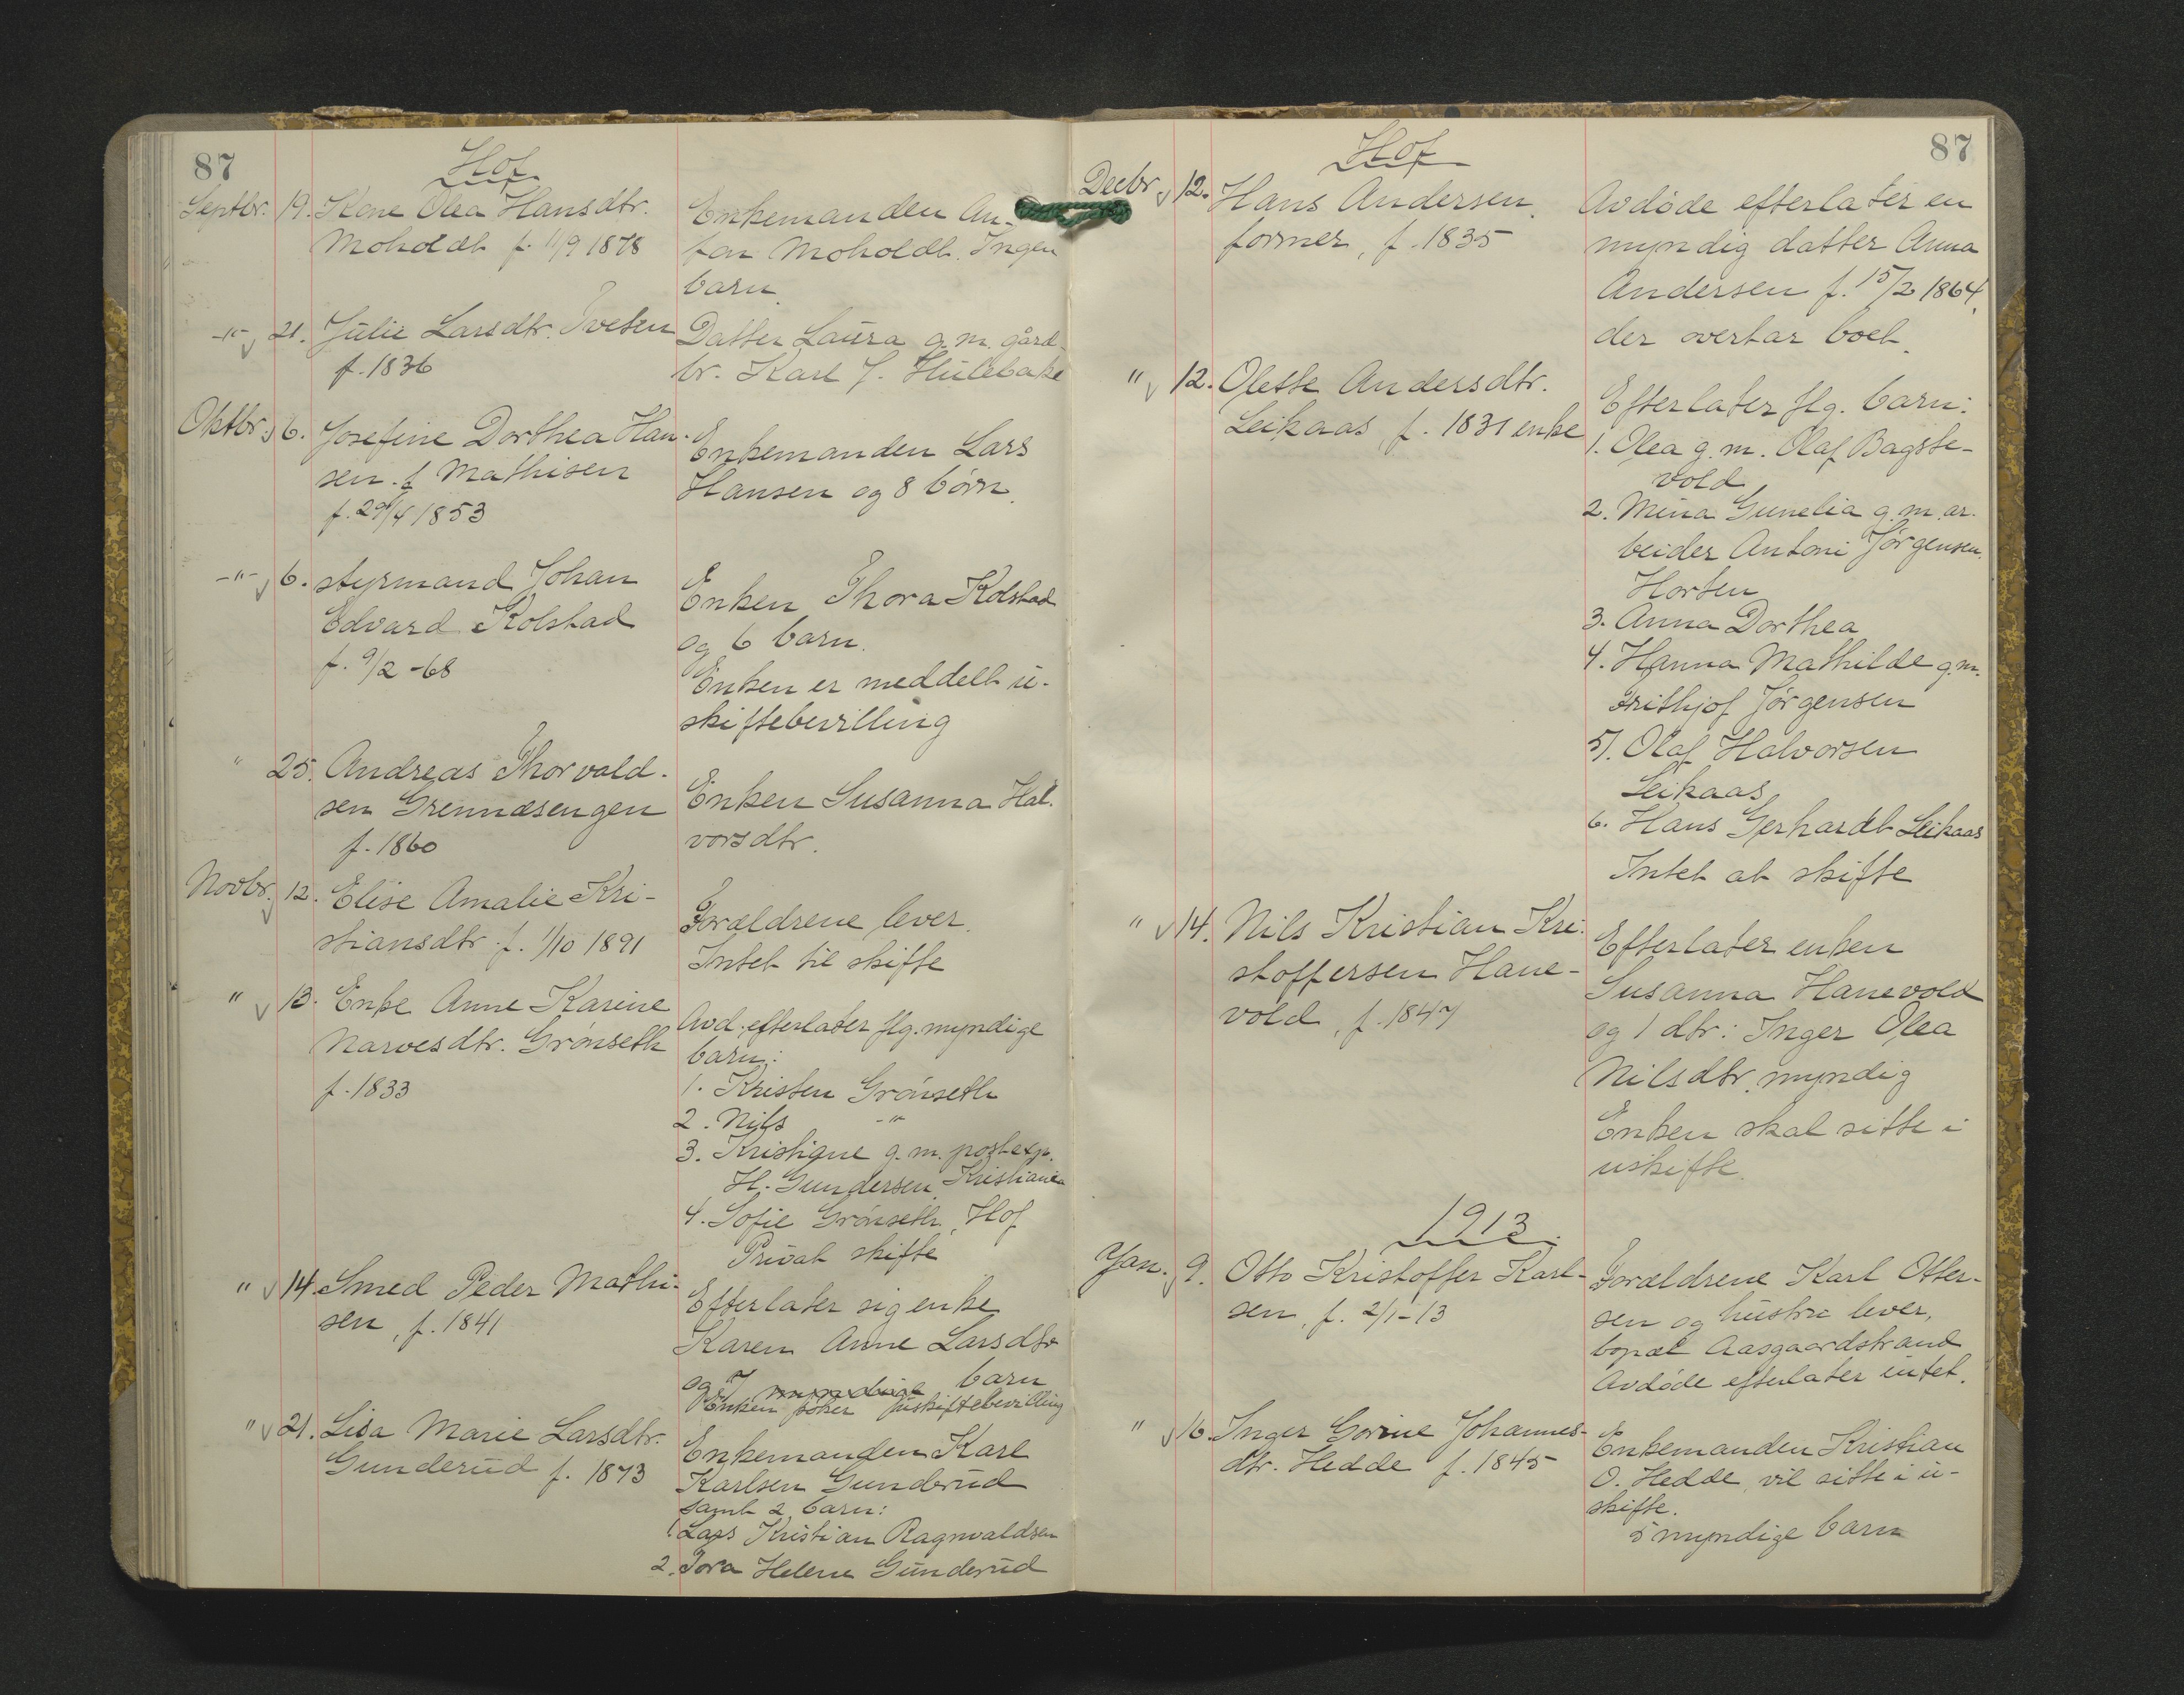 87
Hof
Septbr. 19. Kone Olea Hansdtr.
Moholdt f. 11/9 1878
Enkemanden An-
ton Moholdt. Ingen
barn.
-"- 21. Julie Larsdtr. Tveten
f. 1836
Datter Laura g. m. gård-
br. Karl J. Hulebake
Oktbr. 6. Josefine Dorthea Han-
sen f. Mathisen
f. 29/4 1853
Enkemanden Lars
Hansen og 8 børn.
-"- 6. styrmand Johan
Edvard Kolstad
f. 9/2 -68
Enken Thora Kolstad
og 6 barn.
Enken er meddelt u-
skiftebevilling
" 25. Andreas Thorvald-
sen Grennæsengen
f. 1860
Enken Susanna Hal-
vorsdtr.
Novbr. 12. Elise Amalie Kri-
stiansdtr. f. 1/10 1891
Forældrene lever.
Intet til skifte
" 13. Enke Anne Karine
Narvesdtr. Grønseth
f. 1833
Avd. efterlater flg. myndige
barn:
1. Kristen Grønseth
2. Nils -"-
3. Kristiane g. m. postexp.
H. Gundersen, Kristiania
4. Sofie Grønseth, Hof
Privat skifte
" 14. Smed Peder Mathi-
sen, f. 1841
Efterlater sig enke
Karen Anne Larsdtr
og 7 myndige barn
Enken søker uskiftebevilling
" 21. Lisa Marie Larsdtr.
Gunderud f. 1873
Enkemanden Karl
Karlsen Gunderud
samt 2 barn:
1 Lars Kristian Ragnvaldsen
2. Tora Helene Gunderud
87
Hof
Decbr. 12. Hans Andersen,
former, f. 1835
Avdøde efterlater en
myndig datter Anna
Andersen f. 15/2 1864,
der overtar boet.
" 12. Olette Andersdtr.
Leikaas, f. 1831 enke
Efterlater flg. barn:
1. Olea g. m. Olaf Bagste-
vold
2. Mina Gunelia g. m. ar-
beider Antoni Jørgensen,
Horten
3. Anna Dorthea
4. Hanna Mathilde g. m.
Frithjof Jørgensen
5. Olaf Halvorsen
Leikaas
6. Hans Gerhardt Leikaas
Intet at skifte
" 14. Nils Kristian Kri-
stoffersen Hane-
vold, f. 1847
Efterlater enken
Susanna Hanevold
og 1 dtr: Inger Olea
Nilsdtr. myndig
Enken skal sitte i
uskifte.
1913.
Jan. 9. Otto Kristoffer Karl-
sen, f. 2/1-13
Forældrene Karl Otter-
sen og hustru lever,
bopæl Aasgaardstrand
Avdøde efterlater intet.
" 16. Inger Gorine Johannes-
dtr. Hedde f. 1845
Enkemanden Kristian
O. Hedde, vil sitte i u-
skifte.
5 myndige barn